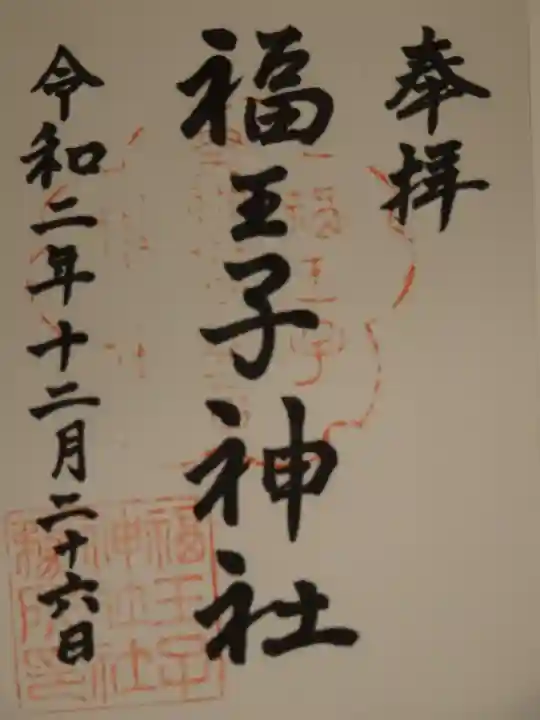 奉拝
福王子神社
令和二年十二月二十六日
福王子
神社社
務所印